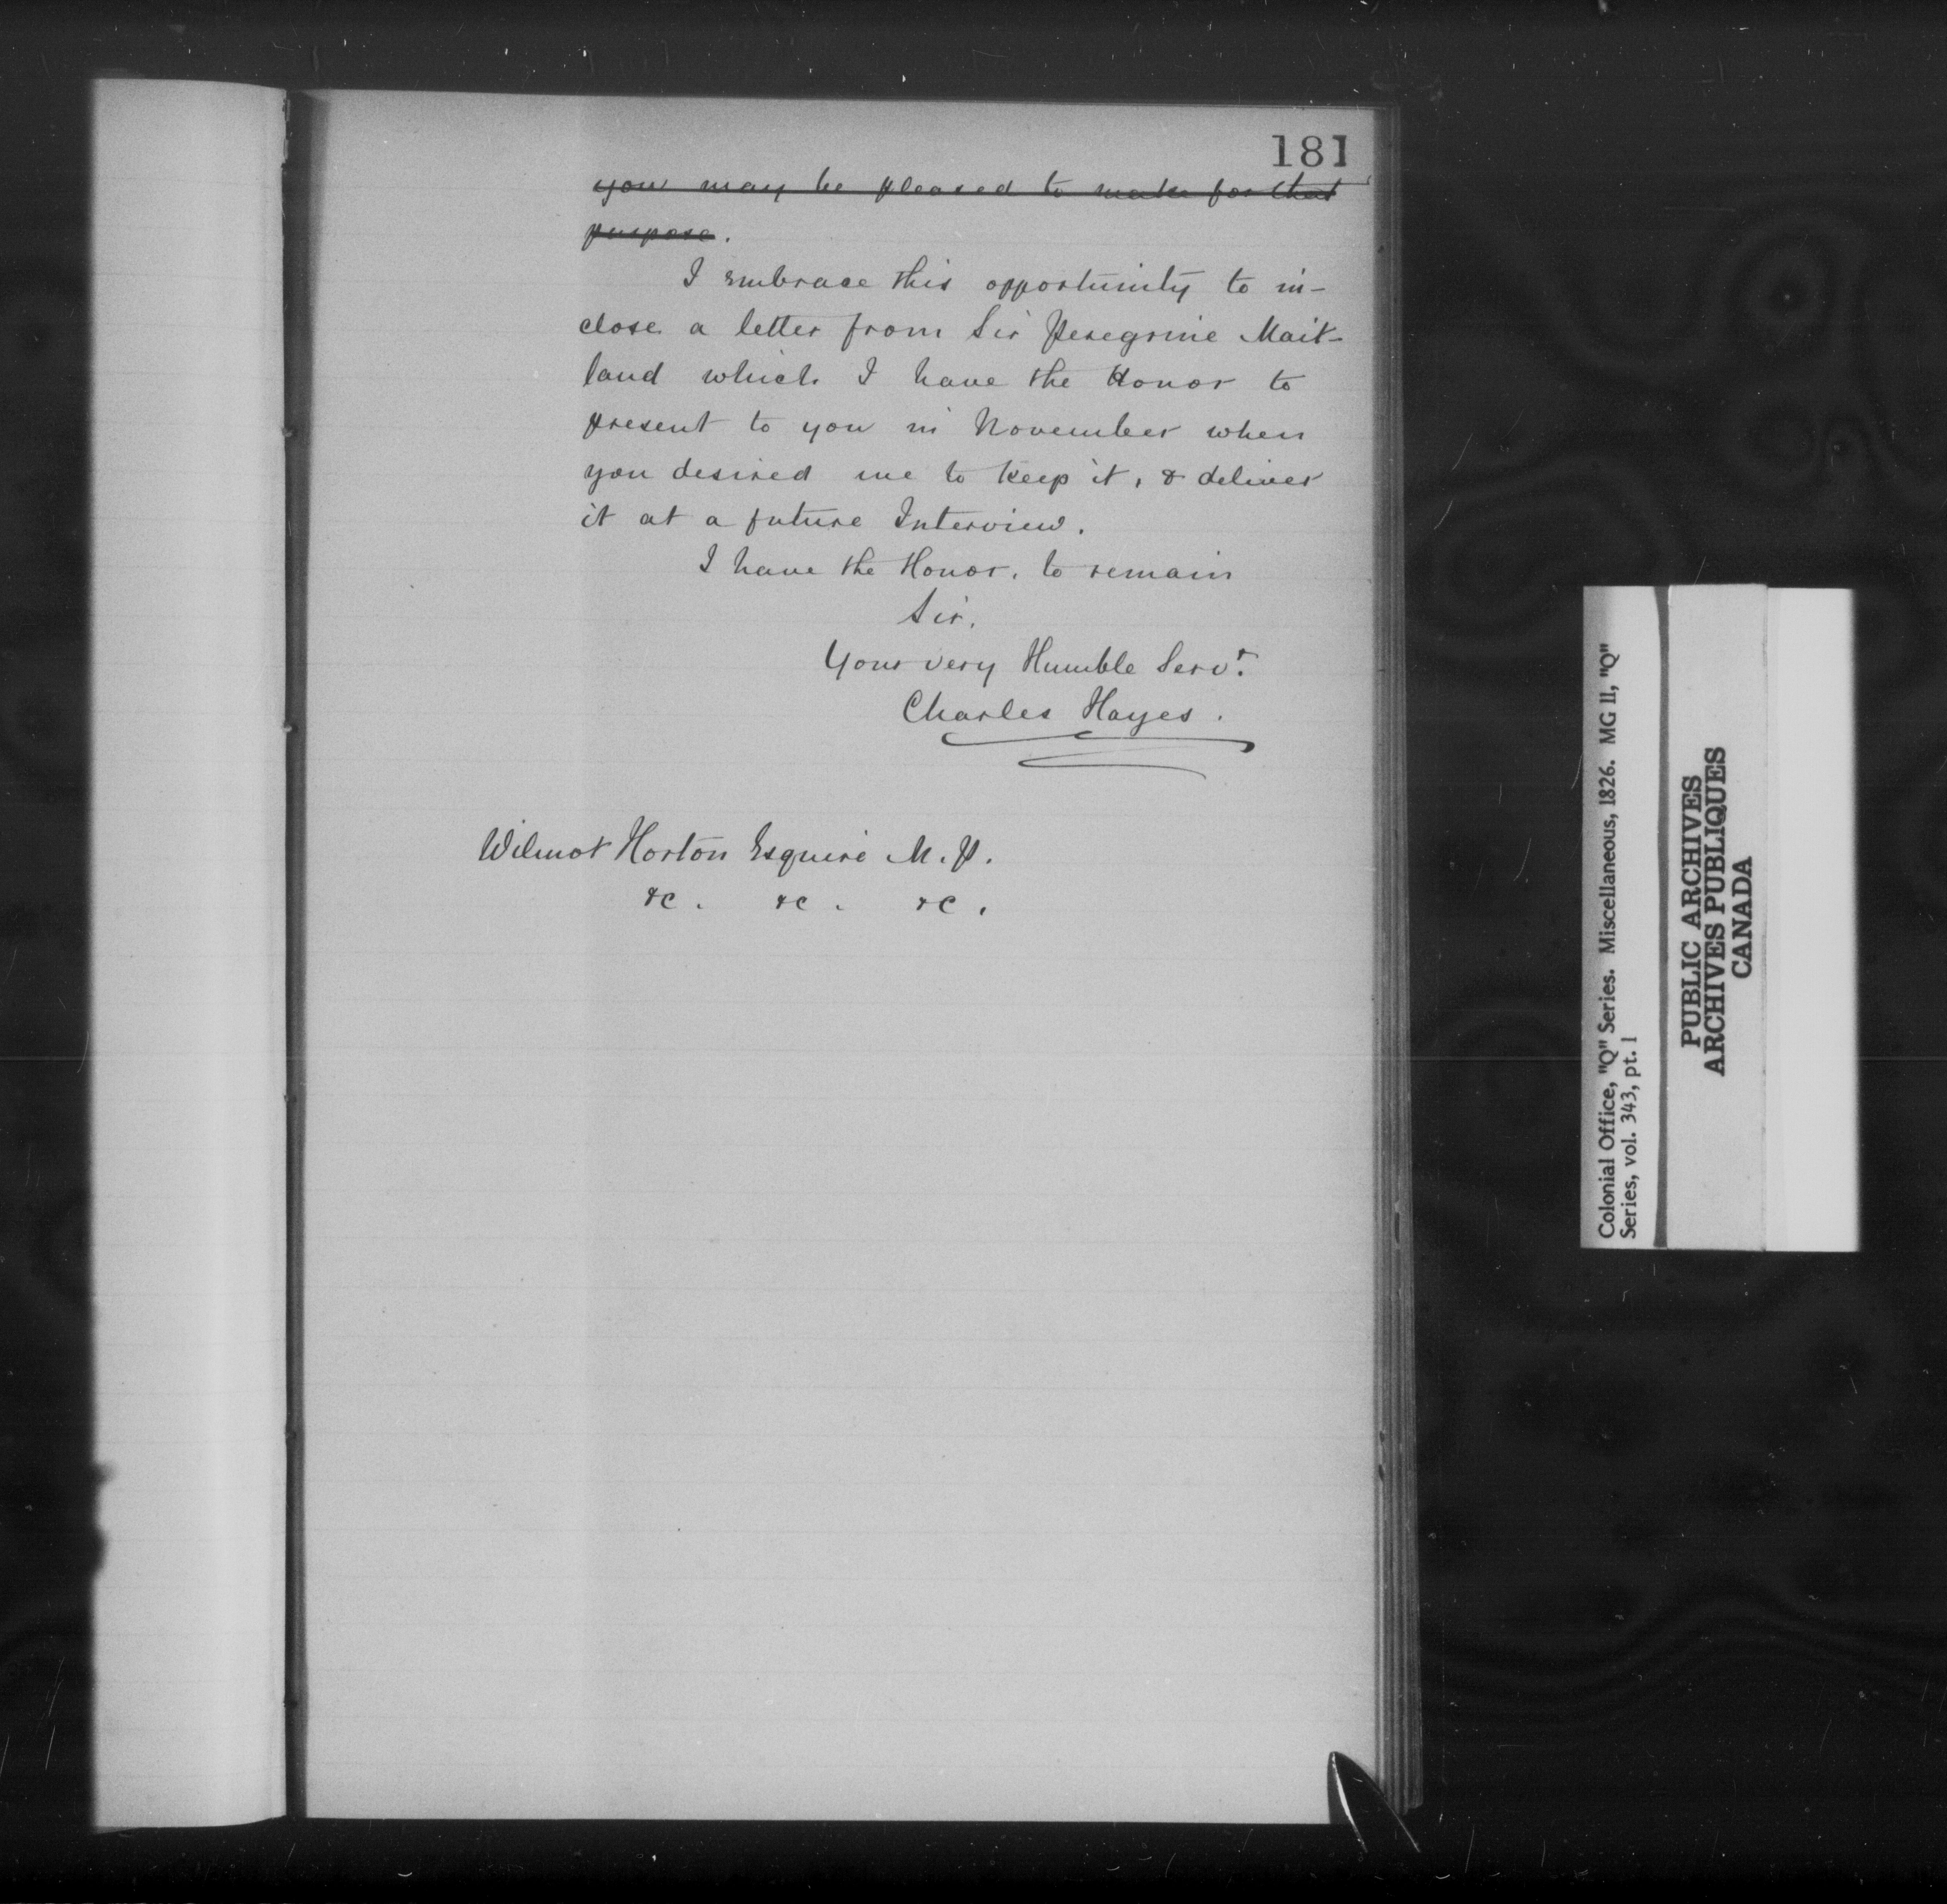 181
you may be pleased to make for that
purpose.
I embrace this opportunity to in-
close a letter from Sir Peregrine Mait-
land which I have the Honor to
present to you in November when
you desired me to keep it, & deliver
it at a future Interview.
I have the Honor, to remain
Sir,
Your very Humble Servt.
Charles Hayes.
Wilmot Horton Esquire M.P.
&c. &c. &c.
Colonial Office, "Q" Series. Miscellaneous, 1826. MG 11, "Q"
Series, vol. 343, pt. 1
PUBLIC ARCHIVES
ARCHIVES PUBLIQUES
CANADA